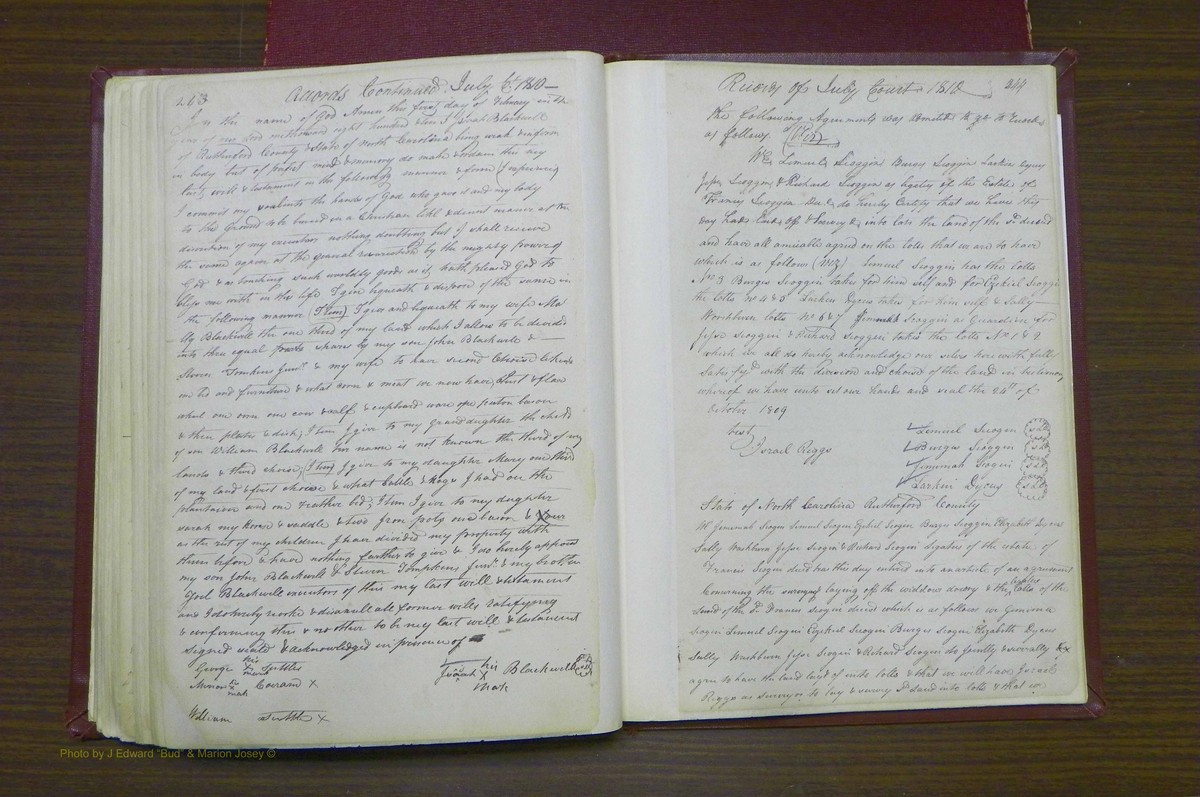 263 Records Continued July Ct 1810
In the name of God Amen this first day of in the
year of our Lord eight hundred & ten I Josiah Blackwell
of Rutherford County & State of North Carolina being weak & infirm
in body but of perfect mind & memory do make & ordain this my
last will & testament in the following manner & form (
I commit my soul into the hands of God who gave it and my body
to the Ground to be buried in a Christian like & decent manner at the
discretion of my executors nothing doubting but I shall receive
the same again at the general resurrection by the mighty power of
God & as touching such worldly goods as it hath pleased God to
bless me with in this life I give bequeath & dispose of the same in
the following manner (Item) I give and bequeath to my wife Ma
lly Blackwell the one third of my land which I allow to be divided
into three equal parts shares by my son John Blackwell &
Steven Tomkins Junr & my wife to have second Choice likewise
one bed and furniture & what corn & meat we now have &
wheel one oven one cow & calf & cupboard ware one bason
& three plates & dish; Item I give to my Granddaughter the child
of son William Blackwell her name is not known the third of my
lands & third choice; Item I give to my daughter Mary one third
of my land & first choice & what Cattle & Hogs I had on the
plantation and one feather bed; Item I give to my daughter
Sarah my horse & saddle & two Iron pots one bason &
as the rest of my children I have divided my property with
them before & have nothing farther to give & I do hereby appoint
my son John Blackwell & Steven Tompkins Junr & my brother
Joel Blackwell executors of this my last will & testament
and I do hereby revoke & disannull all former wills ratifying
& confirming this & no other to be my last will & testament
signed seald & acknowledged in presence of
George his x mark Suttles
Josiah his x mark Blackwell
x mark x
William Suttle x
Records of July Court 1810 264
The Following Agreements was to be
as follows (Viz)
We Lemuel Scoggin Burges Scoggin Larkin Dycus
Jesse Scoggin & Richard Scoggin as legatees of the Estate of
Francis Scoggin Decd do hereby Certify that we have this
day had Laid off & Surveyed into lots the land of the sd deceasd
and have all amicable agreed on the lotts that we are to have
which is as follows (Viz) Lemuel Scoggin has the lotts
No 3 Burges Scoggin takes for him self and for Ezekiel Scoggin
the lotts No 4 & 5 Larkin Dycus takes for him self & Sally
Washburn lotts No 6 & 7 Jemimah Scoggin as Guardian for
Jesse Scoggin & Richard Scoggin takes the lotts No 1 & 2
which we all do hereby acknowledge our selves here with fully
Satisfyd with the division and choice of the land in testimony
whereof we have unto set our hands and seal the 24th of
October 1809
test
Israel Riggs
Lemuel Scogin seal
Burges Scoggin seal
Jimimah Scogin seal
Larkin Dycus seal
State of North Carolina Rutherford County
We Jemimah Scogin Lemuel Scogin Ezekiel Scogin Burges Scoggin Elizabeth Dycus
Sally Washburn Jesse Scogin & Richard Scogin legatees of the estate of
Francis Scogin decd has this day enterd into an article of an agreement
Concerning the surveying laying off the widdows dowery & the lotts of the
land of the sd Francis Scogin decsd which is as follows we
Scogin Lemuel Scogin Ezekiel Scogin Burges Scogin Elizabeth Dycus
Sally Washburn Jesse Scogin & Richard Scogin do Jointly & severally
agree to have the land layd of into lotts & that we will have Israel
Riggs as Surveyor to lay & survey sd land into lotts & that we
Photo by J Edward "Bud" & Marion Josey ©